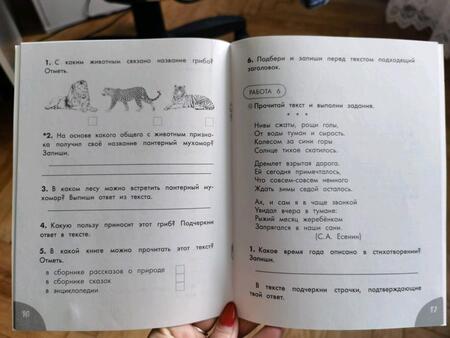 1. С каким животным связано название гриба?
Отметь.
*2. На основе какого общего с животным призна-
ка получил своё название пантерный мухомор?
Запиши.
3. В каком лесу можно встретить пантерный му-
хомор? Выпиши ответ из текста.
4. Какую пользу приносит этот гриб? Подчеркни
ответ в тексте.
5. В какой книге можно прочитать этот текст?
Отметь.
в сборнике рассказов о природе
в сборнике сказок
в энциклопедии
90
6. Подбери и запиши перед текстом подходящий
заголовок.
РАБОТА 6
Прочитай текст и выполни задания.
* * *
Нивы сжаты, рощи голы,
От воды туман и сырость.
Колесом за сини горы
Солнце тихое скатилось.
Дремлет взрытая дорога.
Ей сегодня примечталось,
Что совсем-совсем немного
Ждать зимы седой осталось.
Ах, и сам я в чаще звонкой
Увидал вчера в тумане:
Рыжий месяц жеребёнком
Запрягался в наши сани.
(С.А. Есенин)
1. Какое время года описано в стихотворении?
Запиши.
В тексте подчеркни строчки, подтверждающие
твой ответ.
91